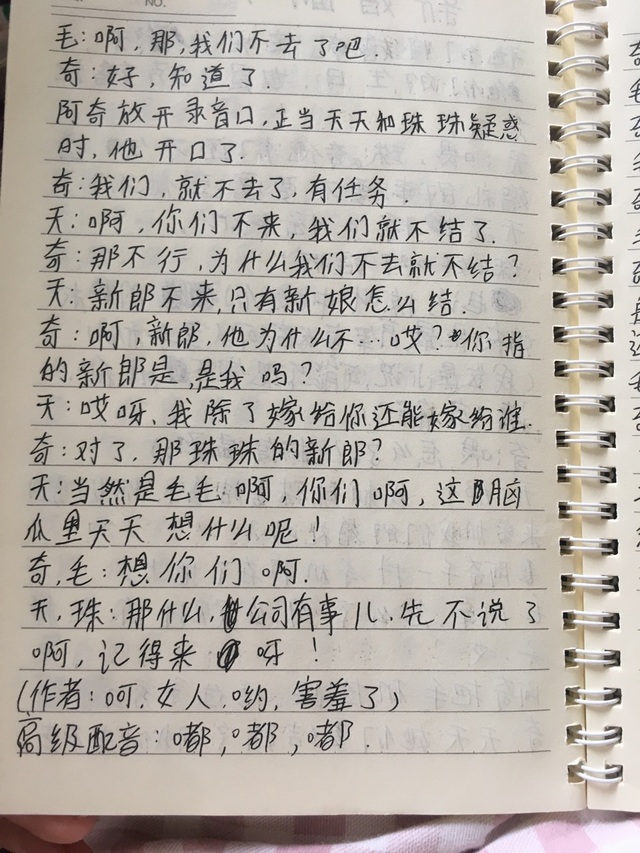 NO.
毛:啊,那,我们不去了吧.
奇:好,知道了.
阿奇放开录音口,正当天天和珠珠疑惑
时,他开口了.
奇:我们,就不去了,有任务.
天:啊,你们不来,我们就不结了.
奇:那不行,为什么我们不去就不结?
天:新郎不来,只有新娘怎么结.
奇:啊,新郎,他为什么不…哎?你指
的新郎是,是我吗?
天:哎呀、我除了嫁给你还能嫁给谁.
奇:对了,那珠珠的新郎?
天:当然是毛毛啊,你们啊,这脑
瓜里天天想什么呢!
奇,毛:想你们啊.
天,珠:那什么,公司有事儿.先不说了
啊,记得来呀!
(作者:呵.女人.哟,害羞了)
高级配音:嘟,嘟,嘟.